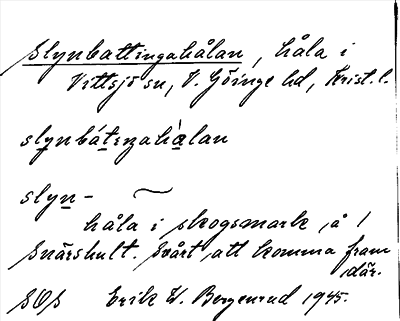 Slynbattingahålan, håla i
Vittsjö sn, V. Göinge hd, Krist. l.
slynbátıŋahàlan
slyn- ~
håla i skogsmark, å /
Snärshult. Svårt att komma fram
där.
SOS Erik W. Bergenrud 1945.